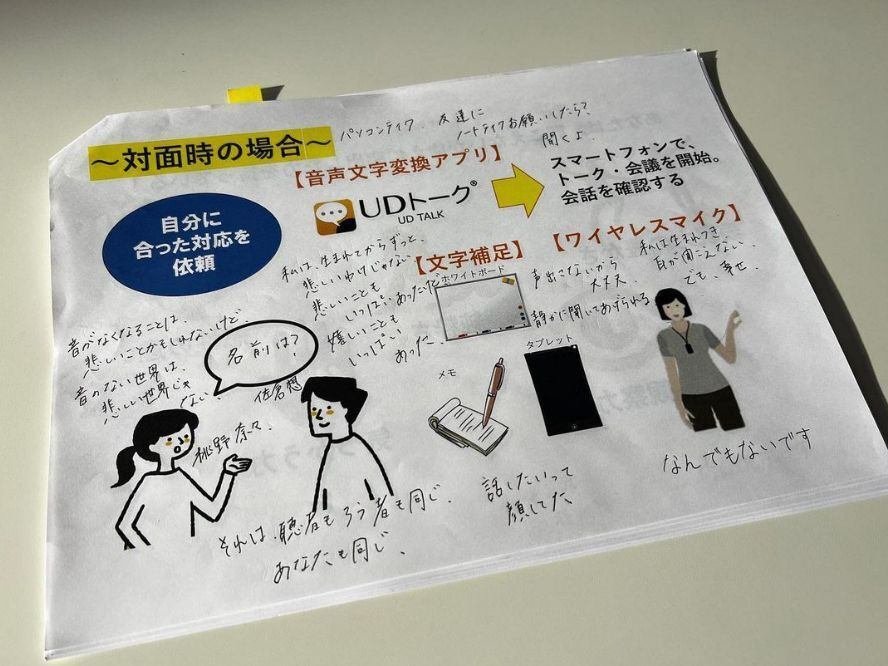 ～対面時の場合～
パソコンテイク、友達に
ノートテイクお願いしたら?
聞くよ、
自分に
合った対応を
依頼
【音声文字変換アプリ】
UDトーク®
UD TALK
スマートフォンで、
トーク・会議を開始。
会話を確認する
私は、生まれてからずっと、
悲しいわけじゃない
悲しいことも
いっぱいあったけど
嬉しいことも
いっぱい
あった、
【文字補足】
ホワイトボード
メモ
タブレット
【ワイヤレスマイク】
声出こないから
大丈夫、
静かに聞いてあげられる
私は生まれつき、
耳が聞こえない、
でも、幸せ、
音がなくなることは、
悲しいことかもしれないけど
音のない世界は、
悲しい世界じゃ
ない、
名前は?
佐倉想
桃野奈々、
それは、聴者もろう者も同じ、
あなたも同じ、
話したいって
顔してた
なんでもないです